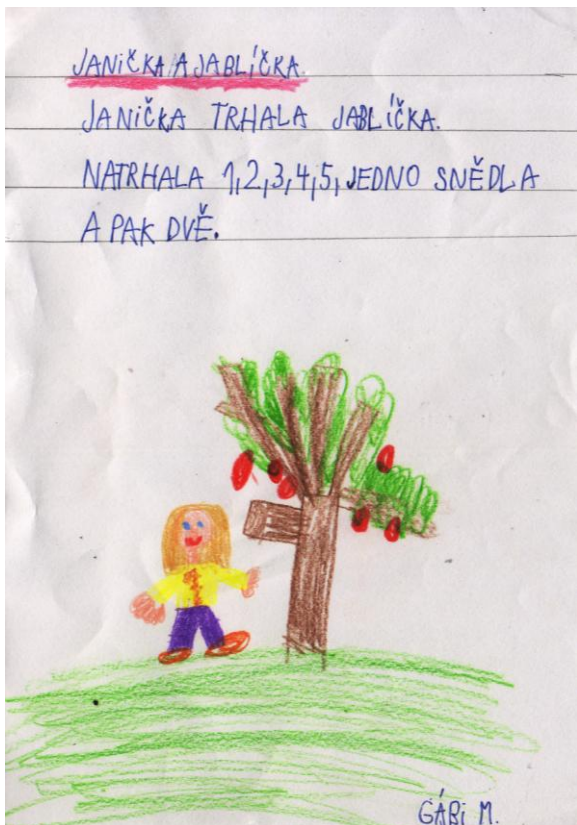 JANIČKA A JABLÍČKA.
JANIČKA TRHALA JABLÍČKA.
NATRHALA 1,2,3,4,5, JEDNO SNĚDLA
A PAK DVĚ.
GÁBI M.